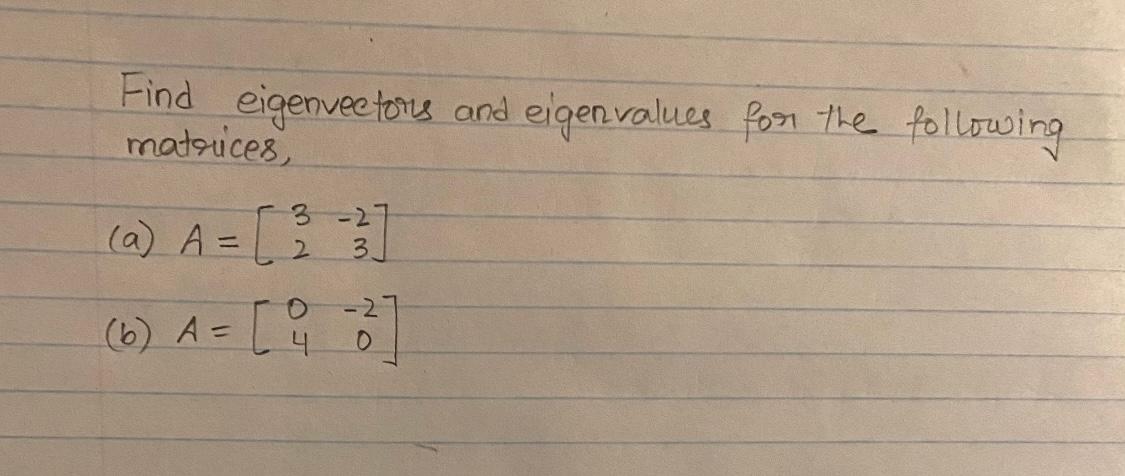 Find eigenvectors and eigenvalues for the following
matrices,
(a) A = [ 3 -2 ]
2 3
(b) A = [ 0 -2 ]
4 0